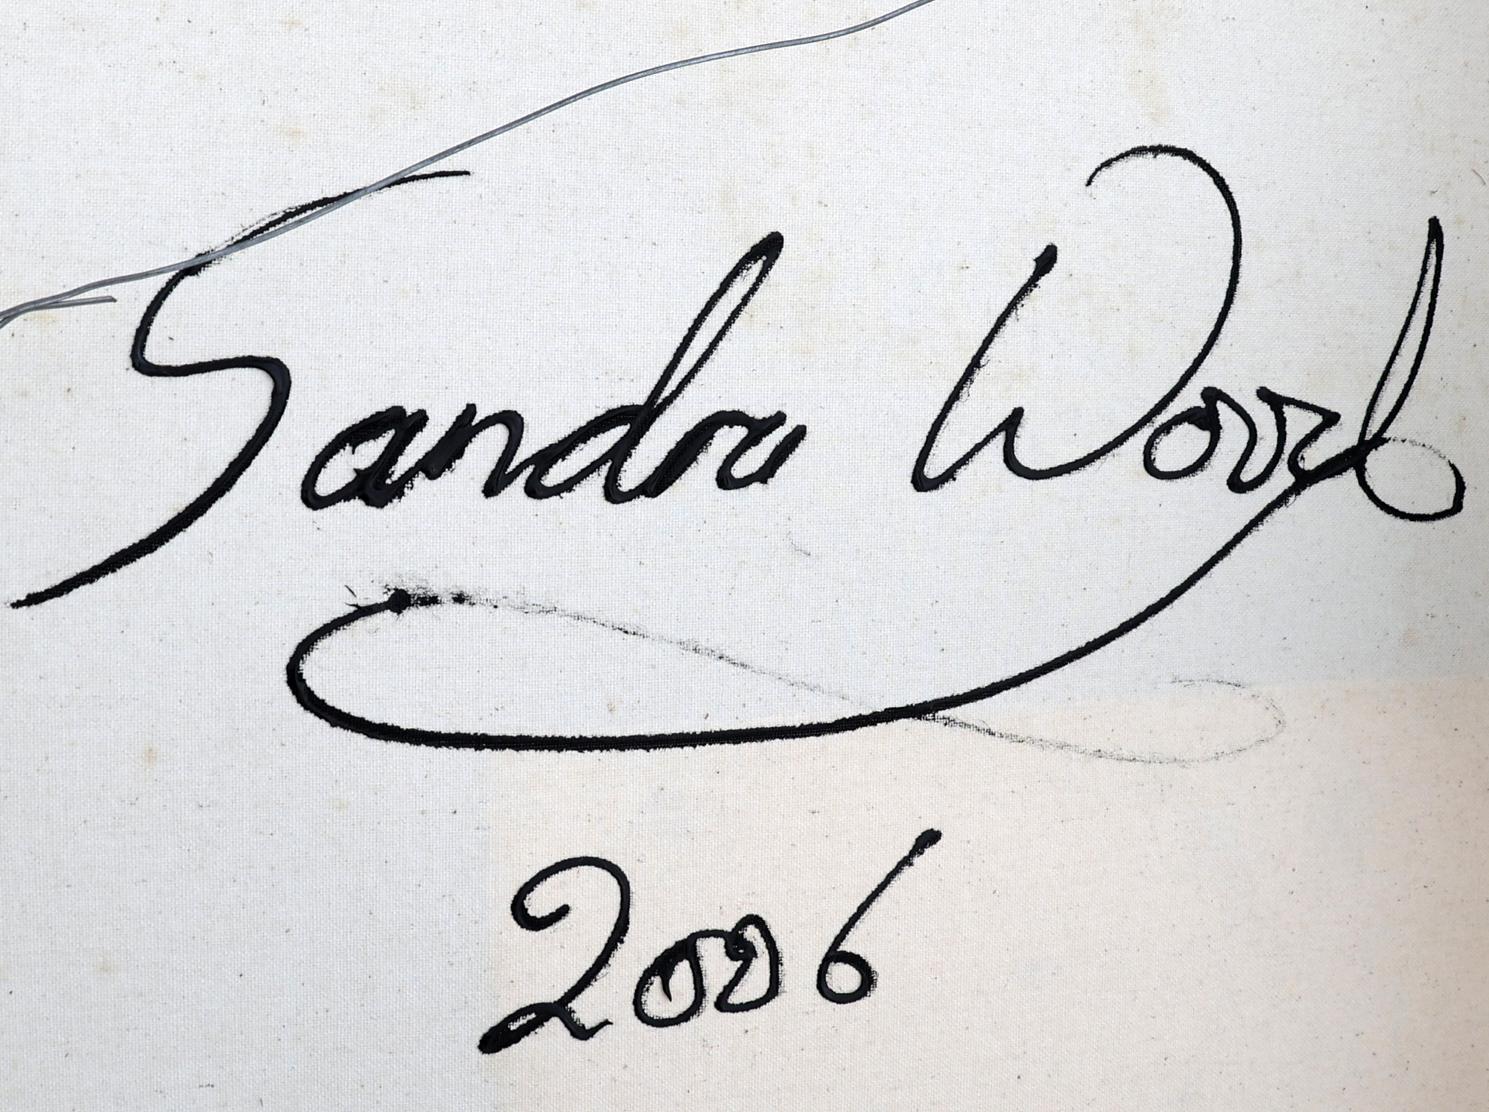 Sandra Wood
2006